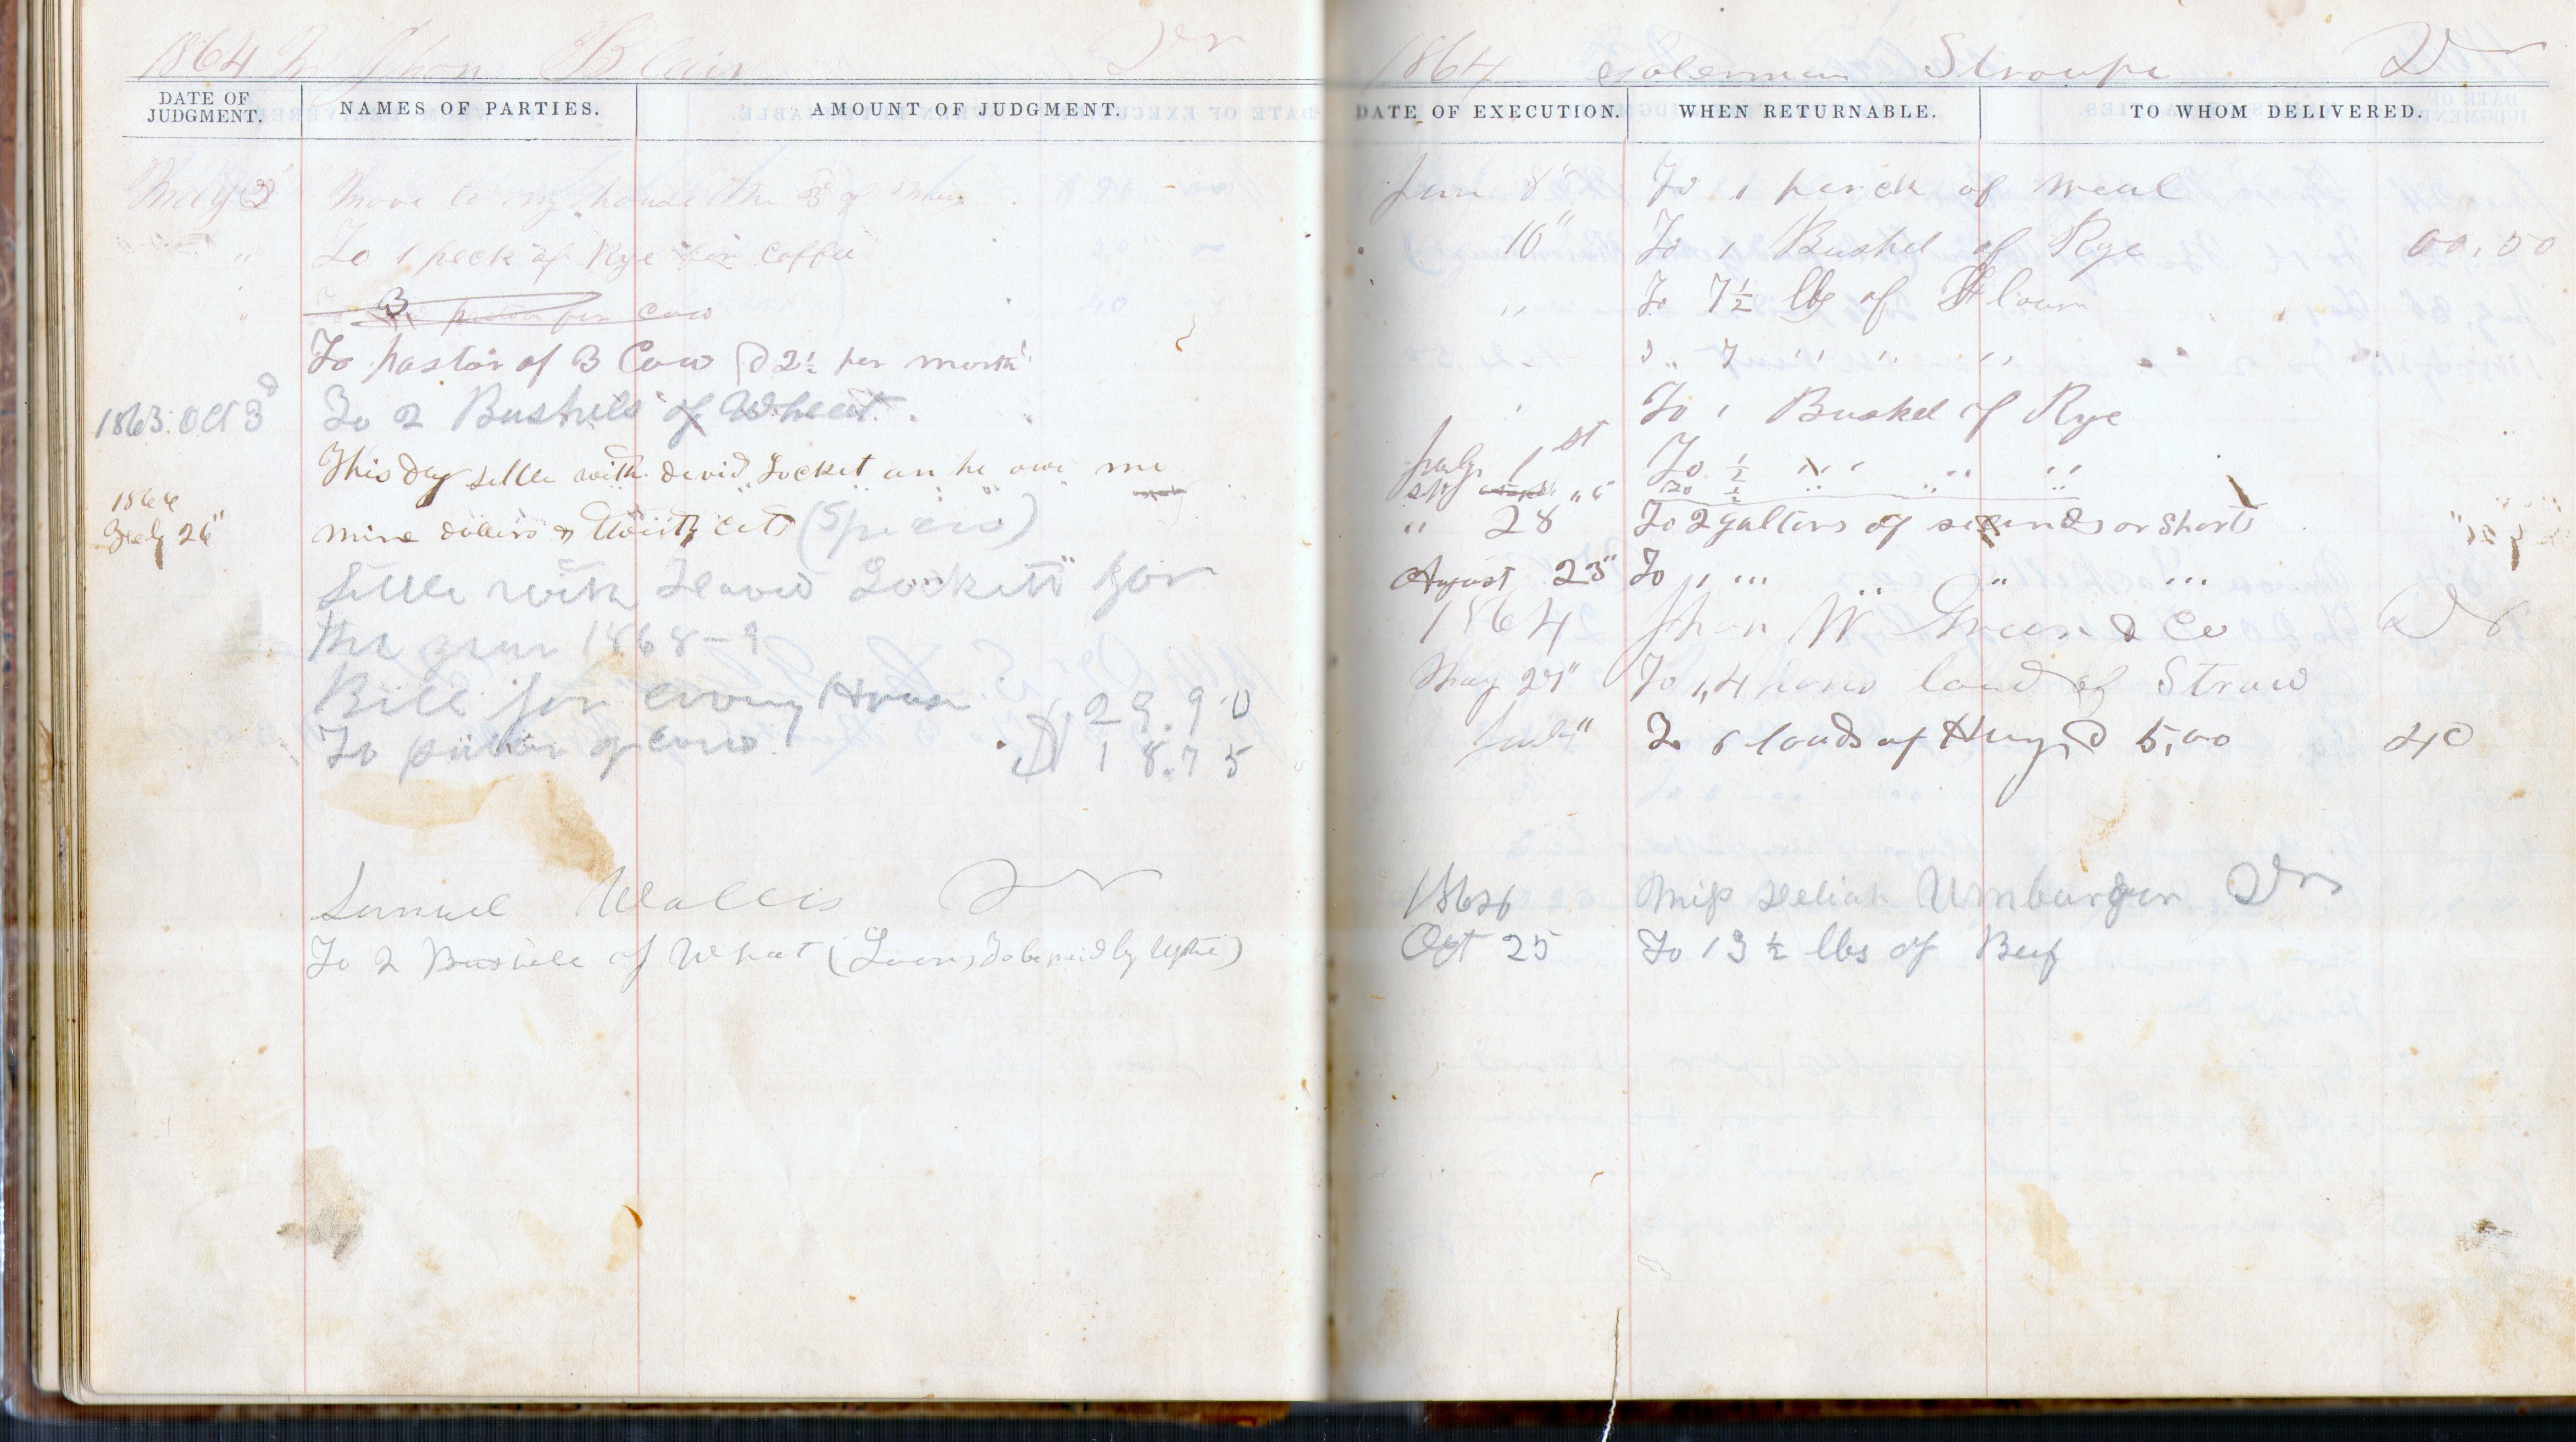 1864 Mr Jhon Blair Dr
DATE OF JUDGMENT. NAMES OF PARTIES. AMOUNT OF JUDGMENT.
May 3 Move to my house the 3d of
" To 1 peck of Rye for Coffee
" Cow
To pastor of 3 Cow @ 2 1/2 per month
1863 Oct 3d To 2 Bushels of Wheat
This day settle with david Locket an he owe me
1866
Feb 26" nine dollers & twenty cts (Specis)
Settle with David Lockett for
the year 1868-9
Bill for House 29.90
To pastor of cows $18.75
Samuel Wallis Dr
To 2 Bushels of Wheat (Loan, to be paid by Wythe)
1864 Soleman Stroupe Dr
DATE OF EXECUTION. WHEN RETURNABLE. TO WHOM DELIVERED.
Jun 8" To 1 perck of meal
16" To 1 Bushel of Rye 00,50
" To 7 1/2 lbs of Flour
" 7 " " "
" To 1 Bushel of Rye
July 1st To 1/2 " " "
To 1/2 " " "
" 28 To 2 gallons of seconds or Shorts
August 23" To " " " "
1864 Jhon W Green & Co Dr
May 27" To 1, 4 hors load of Straw
July" To 8 loads of Hay @ 5,00 40
1866 Miss Deliah Umbarger Dr
Oct 25 To 13 1/2 lbs of Beef